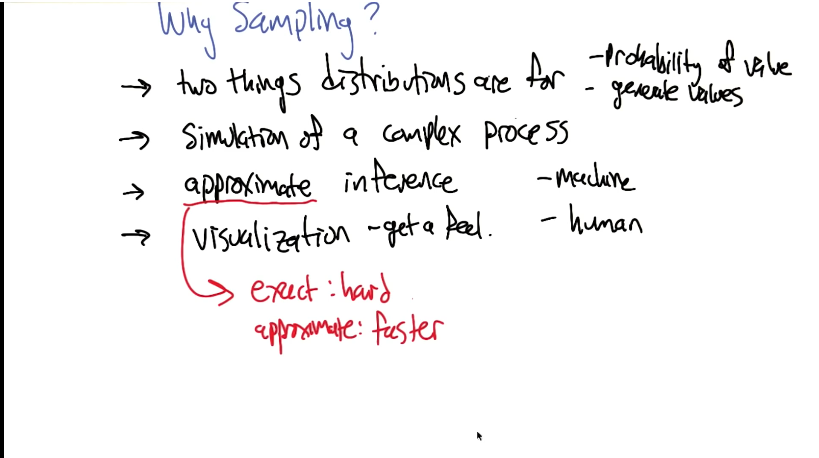 Why Sampling?
→ two things distributions are for - Probability of value
- generate values
→ Simulation of a complex process
→ approximate inference - machine
→ visualization - get a feel. - human
exact : hard
approximate : faster